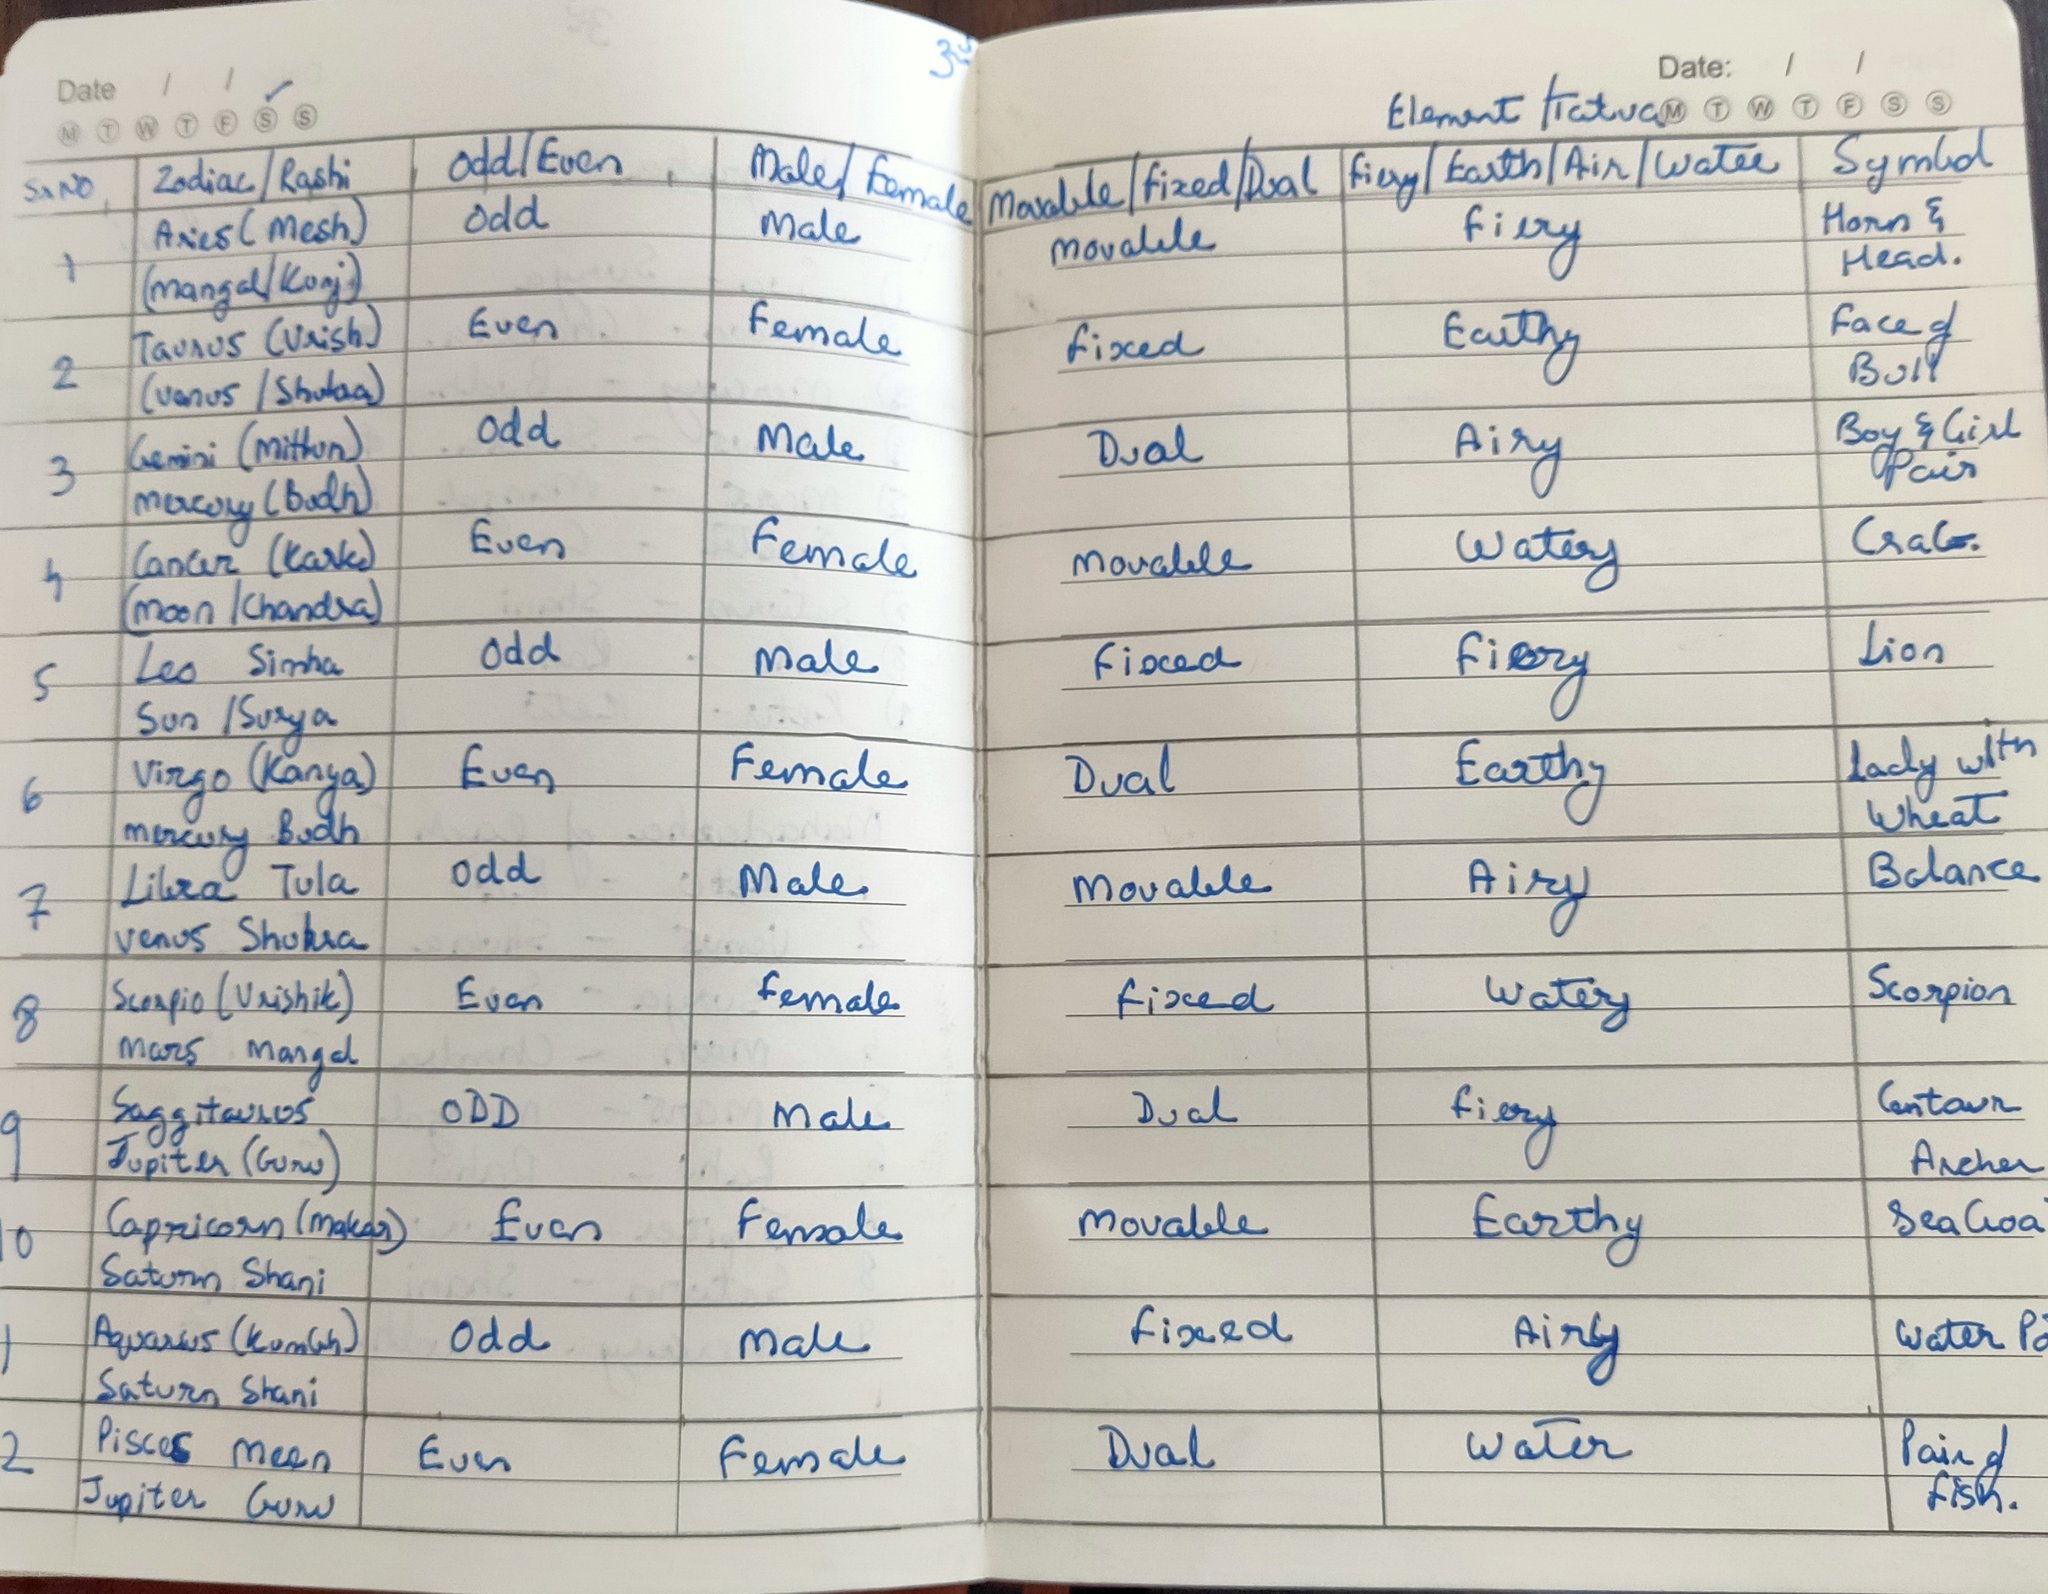 Date / /
M T W T F S S
35
Date: / /
Element /Tatva M T W T F S S
Sr NO. Zodiac/Rashi Odd/Even Male/Female Movable/Fixed/Dual Fiery/Earth/Air/Water Symbol
1 Aries (Mesh) Odd Male Movable Fiery Horn &
(Mangal/Kuj) Head.
2 Taurus (Vrish) Even Female Fixed Earthy Face of
(Venus/Shukra) Bull
3 Gemini (Mithun) Odd Male Dual Airy Boy & Girl
Mercury (Budh) Pair
4 Cancer (Kark) Even Female Movable Watery Crab.
(Moon/Chandra)
5 Leo Simha Odd Male Fixed Fiery Lion
Sun /Surya
6 Virgo (Kanya) Even Female Dual Earthy Lady with
Mercury Budh Wheat
7 Libra Tula Odd Male Movable Airy Balance
Venus Shukra
8 Scorpio (Vrishik) Even Female Fixed Watery Scorpion
Mars Mangal
9 Saggitaurus ODD Male Dual Fiery Centaur
Jupiter (Guru) Archer
10 Capricorn (Makar) Even Female Movable Earthy Sea Goa
Saturn Shani
1 Aquarius (Kumbh) Odd Male Fixed Airy Water Po
Saturn Shani
2 Pisces Meen Even Female Dual Water Pair of
Jupiter Guru Fish.